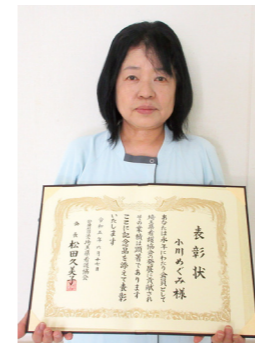 表彰状
小川めぐみ様
あなたは永年にわたり会員として
埼玉県看護協会の発展に貢献され
その業績は顕著であります
ここに記念品を添えて表彰
いたします
令和五年六月十四日
公益社団法人埼玉県看護協会
会長 松田久美子